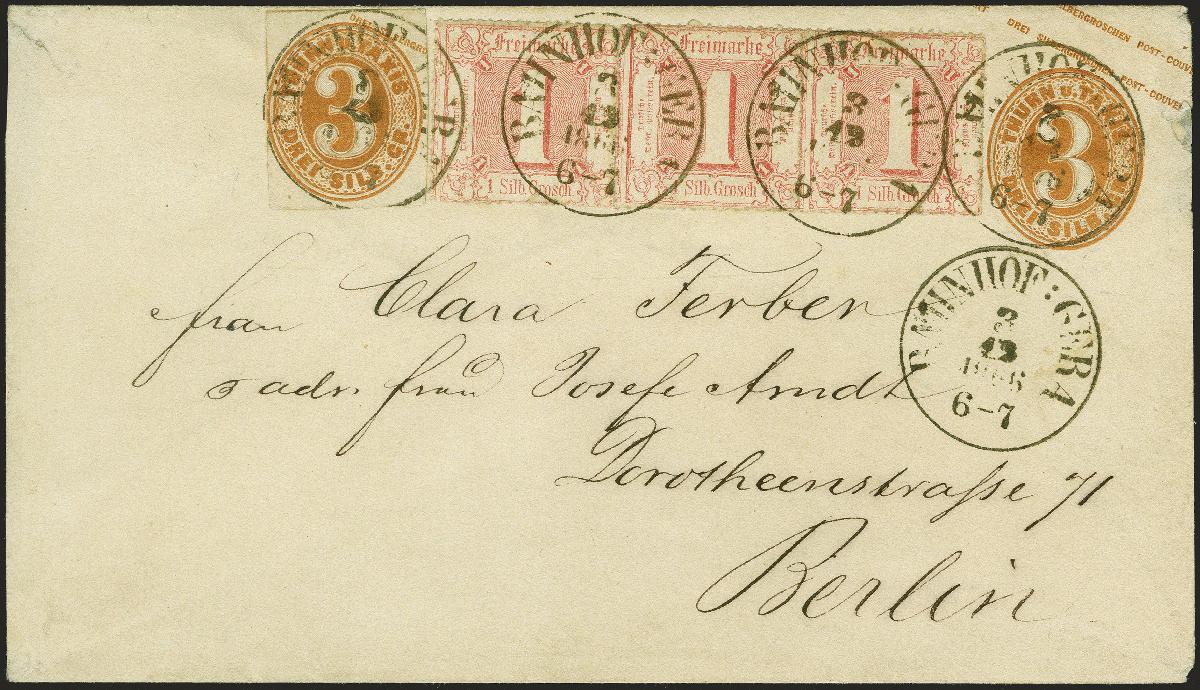 DREI SILBERGROSCHEN POST-COUVERT
THURN U. TAXIS
3
DREI SILB. GR.
Freimarke
1
1 Silb. Grosch
Freimarke
1
1 Silb. Grosch
Freimarke
1
1 Silb. Grosch
THURN U. TAXIS
3
DREI SILB. GR.
BAHNHOF: GERA
3
12
1866
6-7
BAHNHOF: GERA
3
12
6-7
BAHNHOF: GERA
6-7
BAHNHOF: GERA
3
12
1866
6-7
frau Clara Ferber
adr. frau Josefe Arndt
Dorotheenstraße 71
Berlin